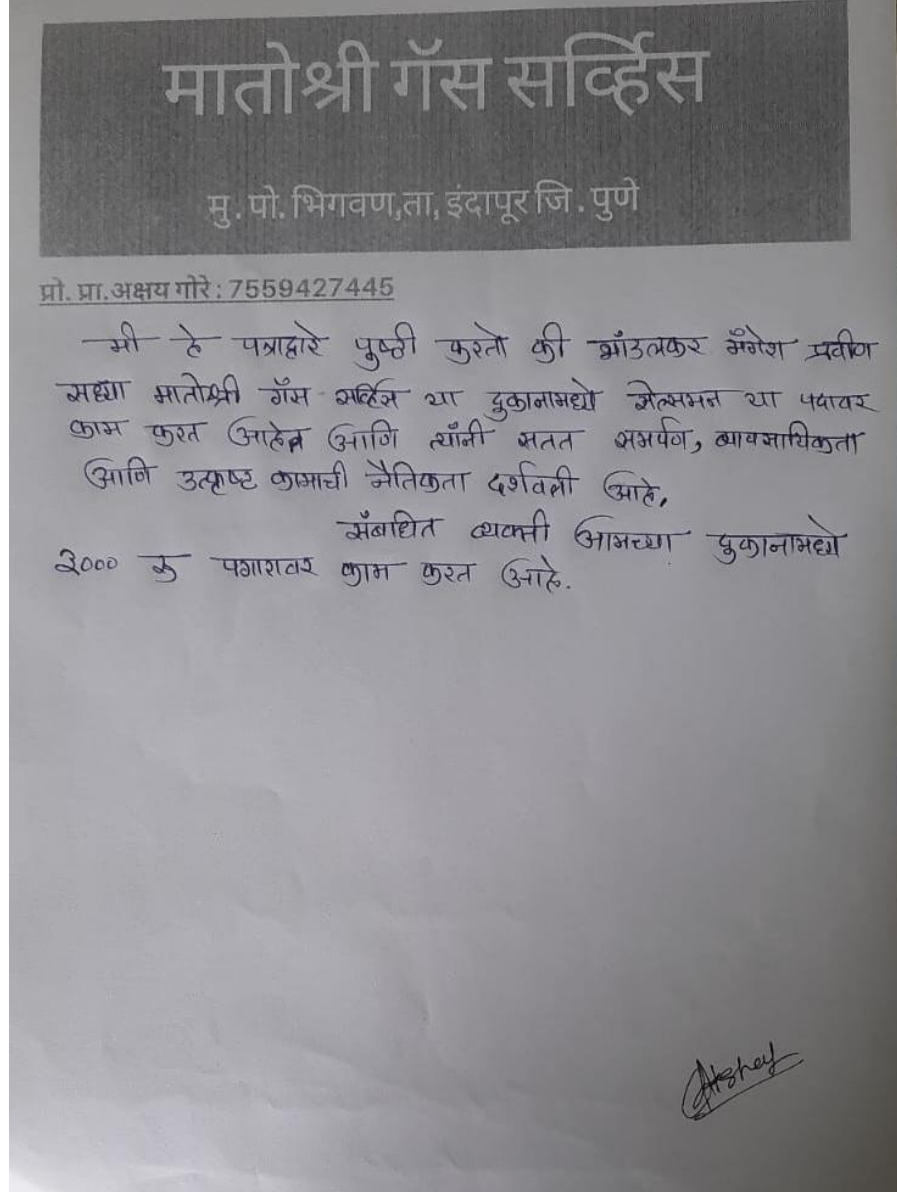 मातोश्री गॅस सर्व्हिस
मु. पो. भिगवण,ता, इंदापूर जि. पुणे
प्रो. प्रा.अक्षय गोरे : 7559427445
मी हे पत्राद्वारे पुष्ठी करतो की भाँडलकर मँगेश प्रवीण
सध्या मातोश्री गॅस सर्व्हिस या दुकानामध्ये सेल्समन या पदावर
काम करत आहेत आणि त्याँनी सतत समर्पण, व्यावसायिकता
आणि उत्कृष्ट कामाची नैतिकता दर्शवली आहे,
सँबधित व्यक्ती आमच्या दुकानामध्ये
३००० रु पगारावर काम करत आहे.
Akshay